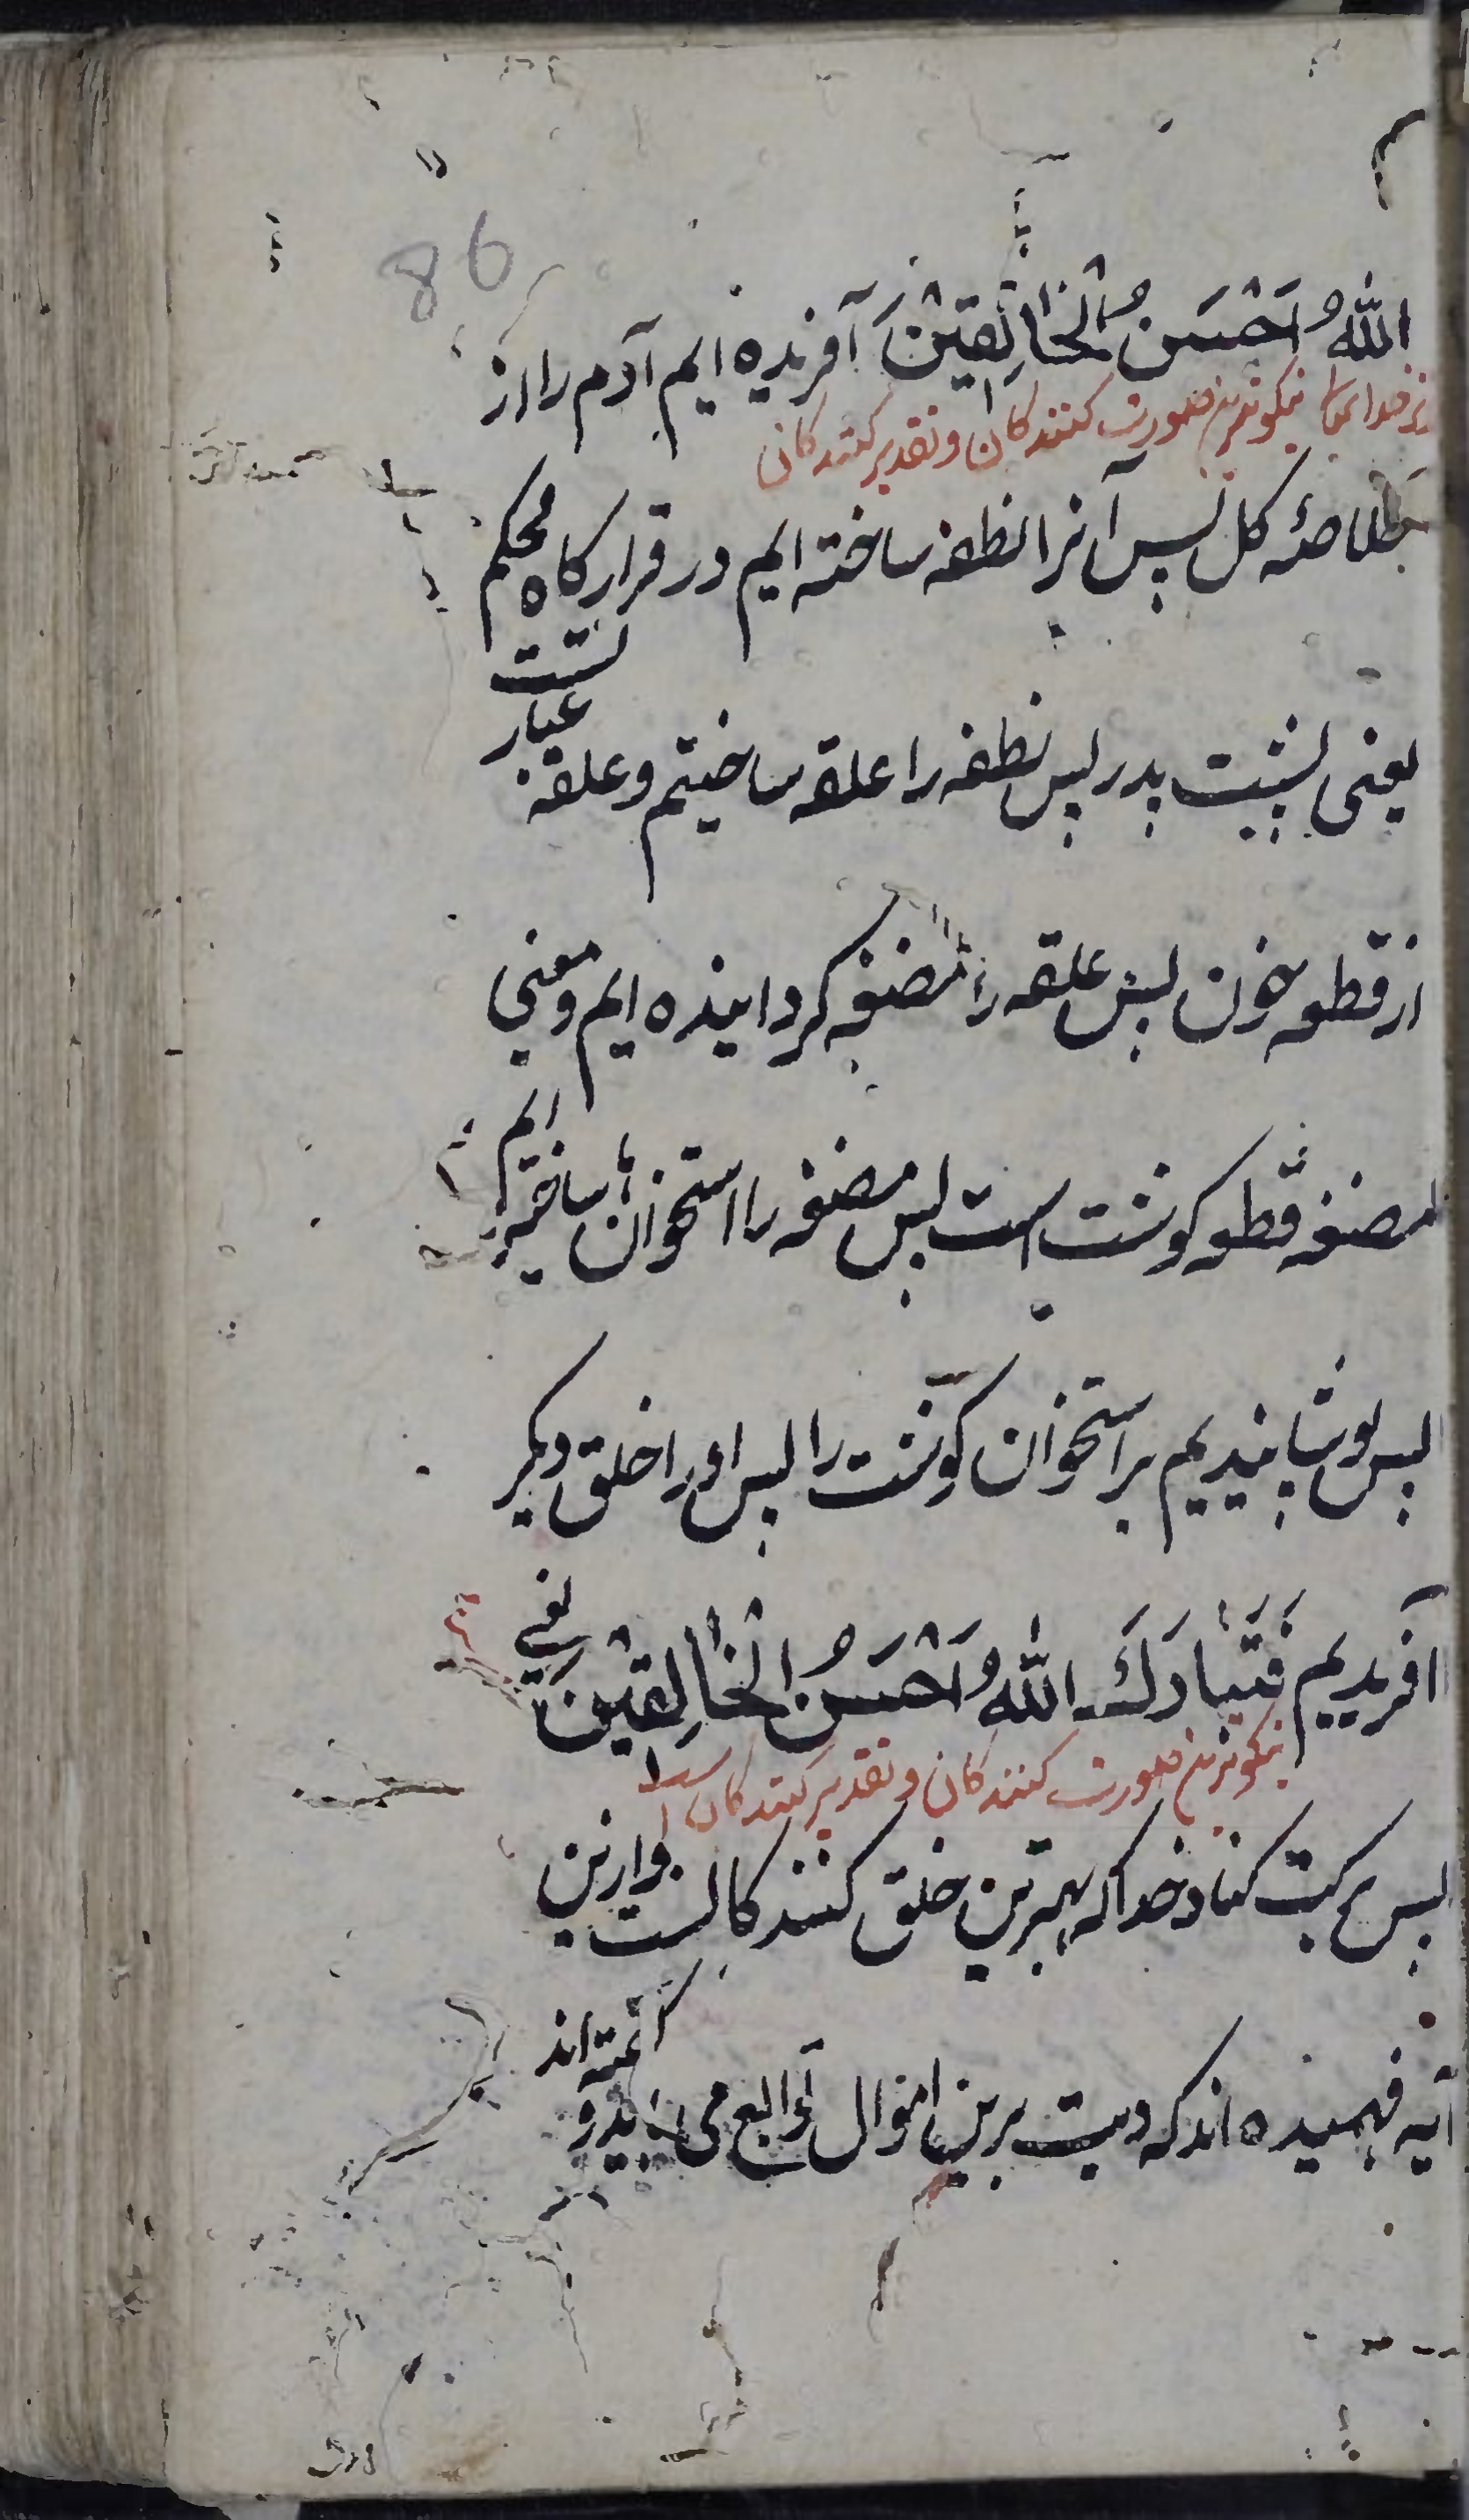 86
اللّٰهُ اَحْسَنُ الْخَالِقِيْنَ آفریده ایم آدم را از
نیکوترین صورت کنندکان و تقدیر کنندکان
خلاصهٔ کل پس آنرا نطفه ساخته ایم در قرارکاه محکم
یعنی پشت پدر پس نطفه را علقه ساختیم و علقه عبارتست
از قطعه خون پس علقه را مضغه کردانیده ایم و معنی
مضغه قطعه کوشت است پس مضغه را استخوان ساخته ایم
پس پوشانیدیم بر استخوان کوشت را پس او را خلق دیکر
آفریدیم فَتَبَارَكَ اللّٰهُ اَحْسَنُ الْخَالِقِيْنَ یعنی
نیکوترین صورت کنندکان و تقدیر کنندکان
پس برکت کناد خدا که بهترین خلق کنندکانست و ازین
آیه فهمیده اند که دیت برین احوال توابع می و کفته اند